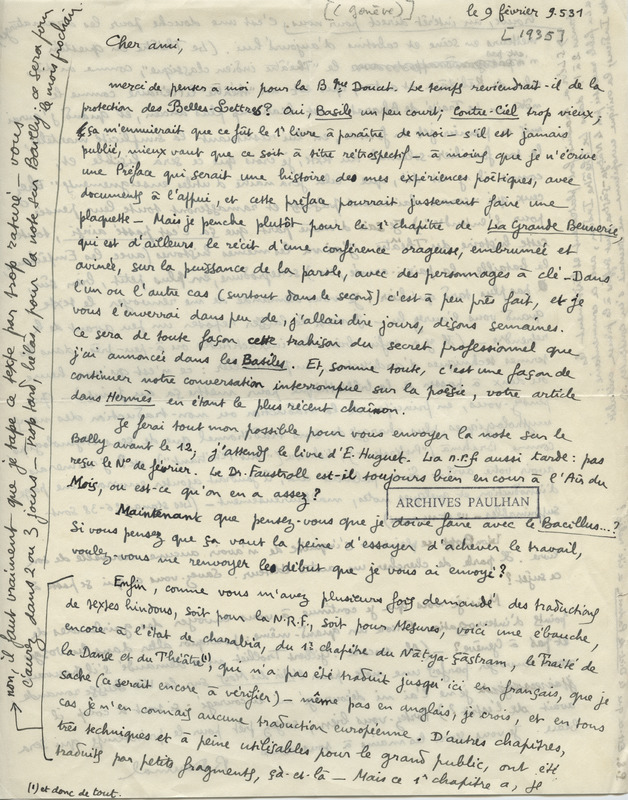 [(Genève)]
le 9 février 9.531
[1935]
Cher ami,
merci de penser à moi pour la B que Doucet. Le temps reviendrait-il de la
protection des Belles-Lettres? Oui, Basile un peu court; Contre-Ciel trop vieux,
ça m'ennuierait que ce fût le 1e livre à paraître de moi – s'il est jamais
publié, mieux vaut que ce soit à titre rétrospectif – à moins que je n'écrive
une Préface qui serait une histoire des mes expériences poëtiques, avec
documents à l'appui, et cette préface pourrait justement faire une
plaquette – Mais je penche plutôt pour le 1e chapitre de La Grande Beuverie,
qui est d'ailleurs le récit d'une conférence orageuse, embrumée et
avinée, sur la puissance de la parole, avec des personnages à clé – Dans
l'un ou l'autre cas (surtout dans le second) c'est à peu près fait, et je
vous l'enverrai dans peu de, j'allais dire jours, disons semaines.
Ce sera de toute façon cette trahison du secret professionnel que
j'ai annoncée dans les Basiles. Et, somme toute, c'est une façon de
continuer notre conversation interrompue sur la poësie, votre article
dans Hermès en étant le plus récent chaînon.
Je ferai tout mon possible pour vous envoyer la note sur le
Bally avant le 12; j'attends le livre d'E. Huguet. La n.r.f aussi tarde: pas
reçu le No de février. Le Dr. Faustroll est-il toujours bien en cour à l'Air du
Mois, ou est-ce qu'on en a assez?
ARCHIVES PAULHAN
Maintenant que pensez-vous que je doive faire avec le Bacillus...?
Si vous pensez que ça vaut la peine d'essayer d'achever le travail,
voulez-vous me renvoyer le début que je vous ai envoyé?
Enfin, comme vous m'avez plusieurs fois demandé des traductions
de textes hindous, soit pour la N.R.F., soit pour Mesures, voici une ébauche,
encore à l'état de charabia, du 1e chapitre du Nāṭya-Çāstram, le Traité de
la Danse et du Théâtre(1), qui n'a pas été traduit jusqu'ici en français, que je
sache (ce serait encore à vérifier) – même pas en anglais, je crois, et en tous
cas je n'en connais aucune traduction européenne. D'autres chapitres,
très techniques et à peine utilisables pour le grand public, ont été
traduits par petits fragments, çà-et-là – Mais ce 1e chapitre a, je
(1) et donc de tout.
→ non, il faut vraiment que je tape ce texte par trop raturé – vous
l'aurez dans 2 ou 3 jours – Trop tard, hélas, pour la note sur Bally; ce sera pour
le mois prochain.